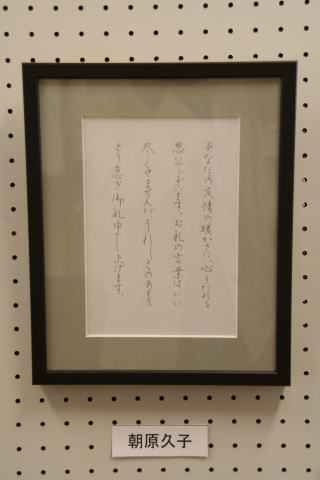 あなたの友情の暖かさに、心うたれる
思いでございます。お礼の言葉はいい
尽くせませんがうれしさのあまり
とり急ぎ御礼申し上げます。
朝原久子